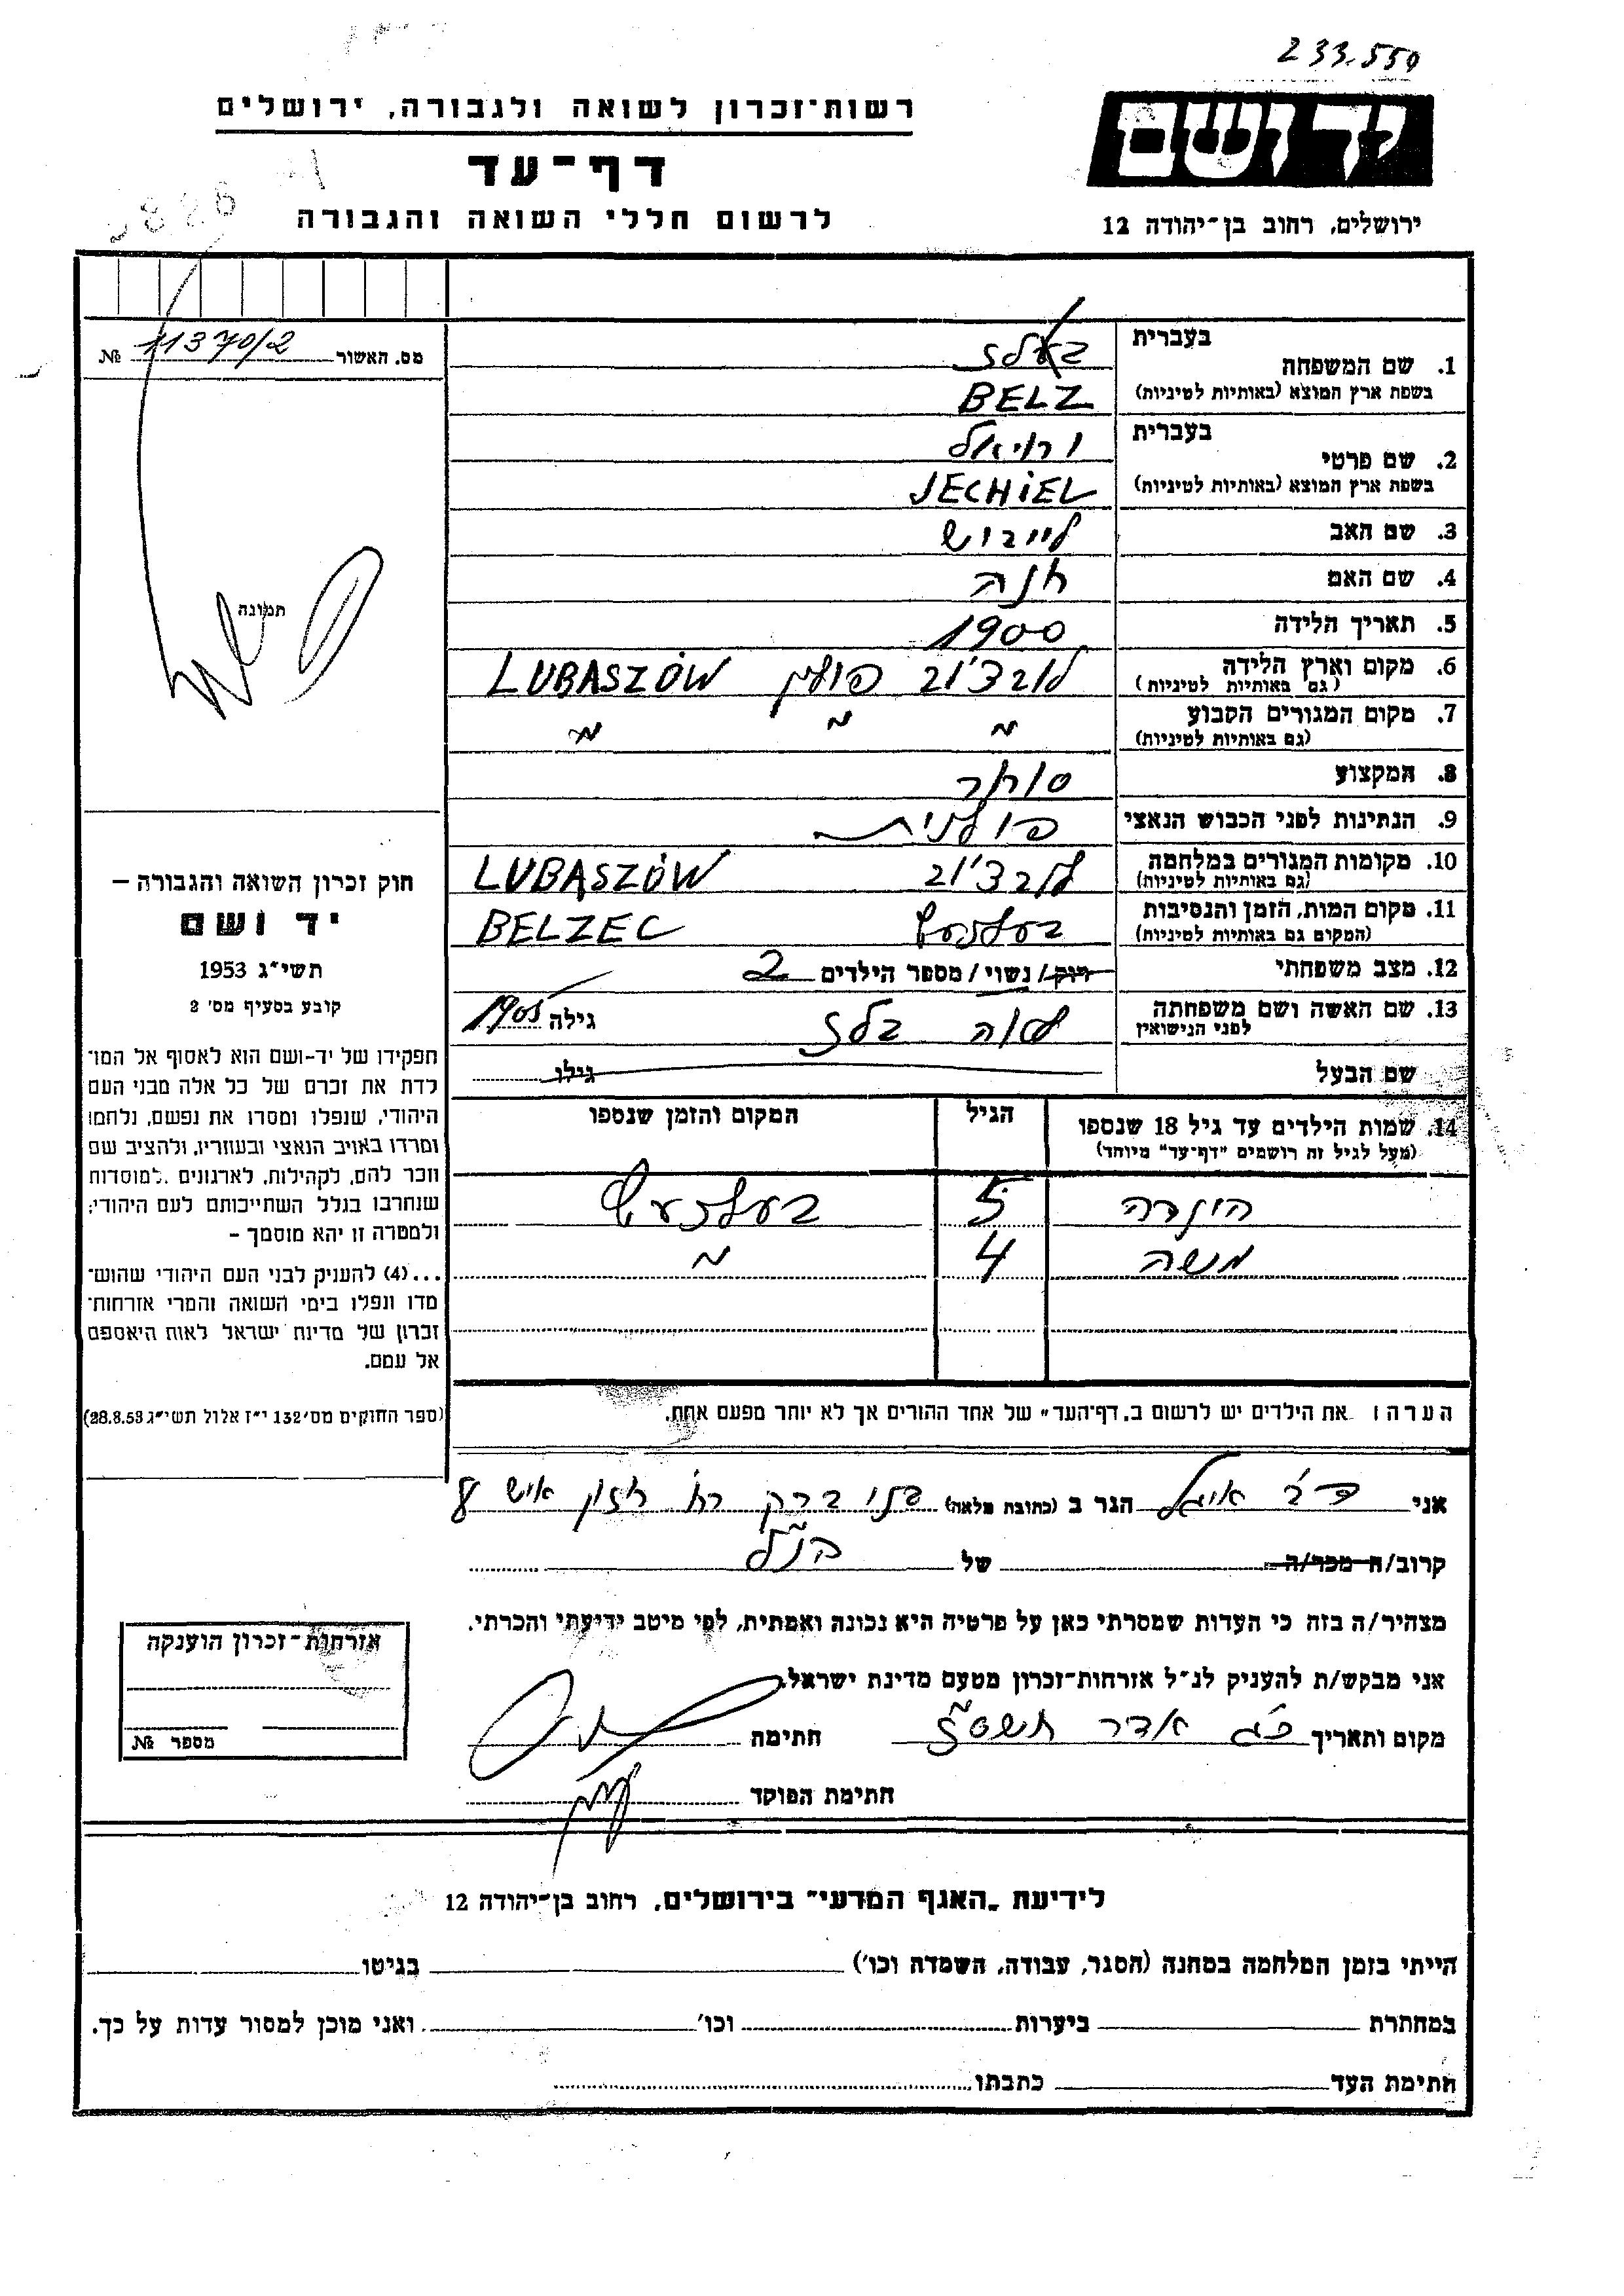 233.559
רשות־זכרון לשואה ולגבורה, ירושלים
יד ושם
דף־עד
לרשום חללי השואה והגבורה
ירושלים, רחוב בן־יהודה 12
מס. האשור 11370/2 №
תמונה
חוק זכרון השואה והגבורה –
יד ושם
תשי״ג 1953
קובע בסעיף מס׳ 2
תפקידו של יד-ושם הוא לאסוף אל המו־
לדת את זכרם של כל אלה מבני העם
היהודי, שנפלו ומסרו את נפשם, נלחמו
ומרדו באויב הנאצי ובעוזריו, ולהציב שם
וזכר להם, לקהילות, לארגונים ולמוסדות
שנחרבו בגלל השתייכותם לעם היהודי;
ולמטרה זו יהא מוסמך –
...(4) להעניק לבני העם היהודי שהוש־
מדו ונפלו בימי השואה והמרי אזרחות־
זכרון של מדינת ישראל לאות היאספם
אל עמם.
(ספר החוקים מס׳ 132 י״ז אלול תשי״ג 28.8.53)
1. שם המשפחה בעברית בעלז
בשפת ארץ המוצא (באותיות לטיניות) BELZ
2. שם פרטי בעברית
בשפת ארץ המוצא (באותיות לטיניות) JECHIEL
3. שם האב לייבוש
4. שם האם חנה
5. תאריך הלידה 1900
6. מקום וארץ הלידה (גם באותיות לטיניות) לובצ׳וב פולין LUBASZÓW
7. מקום המגורים הקבוע (גם באותיות לטיניות) " " "
8. המקצוע סוחר
9. הנתינות לפני הכבוש הנאצי פולנית
10. מקומות המגורים במלחמה (גם באותיות לטיניות) לובצ׳וב LUBASZÓW
11. מקום המות, הזמן והנסיבות (המקום גם באותיות לטיניות) בעלזעץ BELZEC
12. מצב משפחתי רווק/נשוי/מספר הילדים 2
13. שם האשה ושם משפחתה לפני הנישואין לאה בלז גילה 1905
שם הבעל גילו
14. שמות הילדים עד גיל 18 שנספו (מעל לגיל זה רושמים "דף־עד" מיוחד) הגיל המקום והזמן שנספו
הינדה 5 בעלזעץ
מנשה 4 "
הערה: את הילדים יש לרשום ב„דף־העד" של אחד ההורים אך לא יותר מפעם אחת.
אני הגר ב (כתובת מלאה) בני ברק רח׳ חזון איש
קרוב/ה מכר/ה של הנ״ל
מצהיר/ה בזה כי העדות שמסרתי כאן על פרטיה היא נכונה ואמתית, לפי מיטב ידיעתי והכרתי.
אני מבקש/ת להעניק לנ״ל אזרחות־זכרון מטעם מדינת ישראל.
מקום ותאריך אדר חתימה
חתימת הפוקד
אזרחות־זכרון הוענקה
מספר №
לידיעת „האגף המדעי" בירושלים, רחוב בן־יהודה 12
הייתי בזמן המלחמה במחנה (הסגר, עבודה, השמדה וכו׳) בגיטו
במחתרת ביערות וכו׳ ואני מוכן למסור עדות על כך.
חתימת העד כתבתו